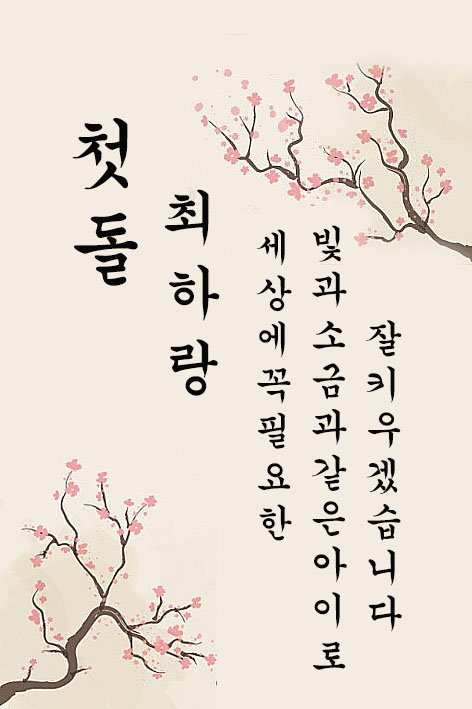 첫돌
최하랑
세상에꼭필요한
빛과소금과같은아이로
잘키우겠습니다